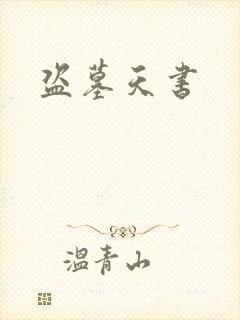 盗墓天书
温青山